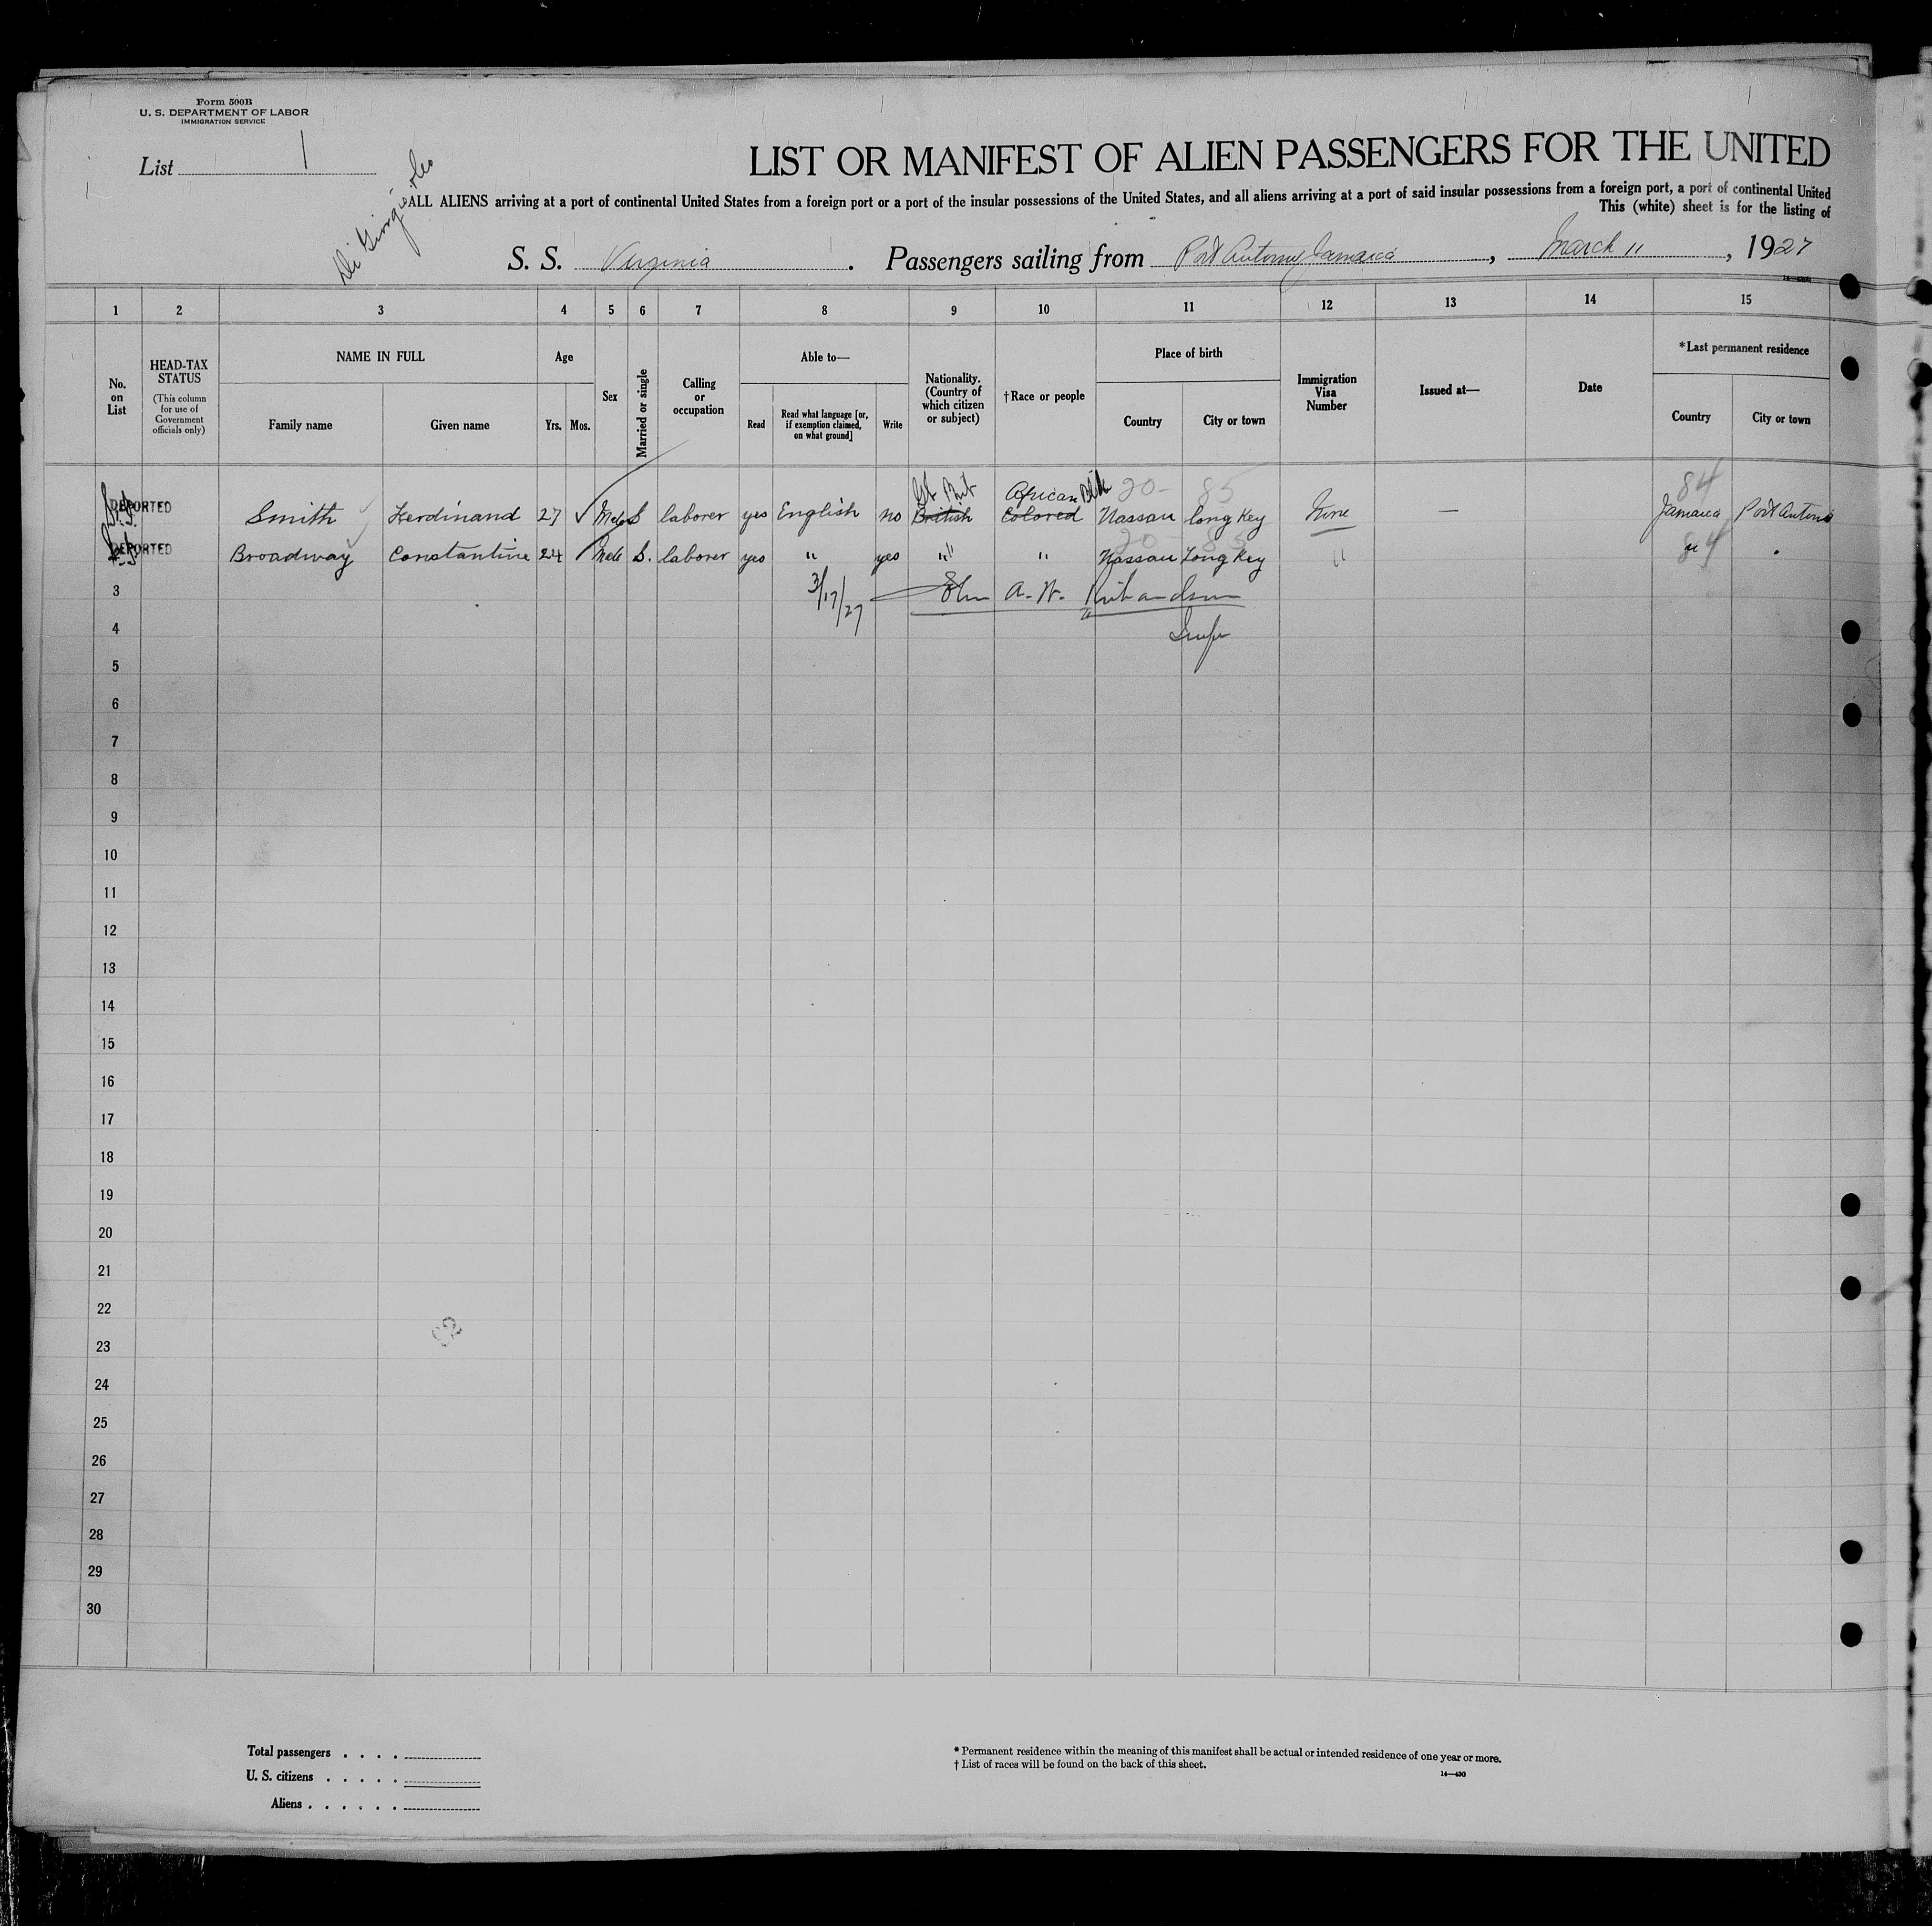 Form 500B
U. S. DEPARTMENT OF LABOR
IMMIGRATION SERVICE
List 1
Di Giorgio
LIST OR MANIFEST OF ALIEN PASSENGERS FOR THE UNITED
ALL ALIENS arriving at a port of continental United States from a foreign port or a port of the insular possessions of the United States, and all aliens arriving at a port of said insular possessions from a foreign port, a port of continental United
This (white) sheet is for the listing of
S. S. Virginia . Passengers sailing from Port Antonio Jamaica , March 11 , 1927
1 2 3 4 5 6 7 8 9 10 11 12 13 14 15
No. on List
HEAD-TAX STATUS (This column for use of Government officials only)
NAME IN FULL
Family name Given name
Age
Yrs. Mos.
Sex
Married or single
Calling or occupation
Able to—
Read Read what language [or, if exemption claimed, on what ground] Write
Nationality. (Country of which citizen or subject)
†Race or people
Place of birth
Country City or town
Immigration Visa Number
Issued at—
Date
*Last permanent residence
Country City or town
Gt Brit African Blk 20- 85 84
DEPORTED Smith Ferdinand 27 ✓ Male S laborer yes English no British Colored Nassau long Key None — Jamaica Port Antonio
20 85 84
DEPORTED Broadway Constantine 24 Male S. laborer yes " yes " " Nassau Long Key " "
3 3/17/27 A. W.
4
5
6
7
8
9
10
11
12
13
14
15
16
17
18
19
20
21
22
23
24
25
26
27
28
29
30
Total passengers . . . .
U. S. citizens . . . . .
Aliens . . . . . .
* Permanent residence within the meaning of this manifest shall be actual or intended residence of one year or more.
† List of races will be found on the back of this sheet.
14—430